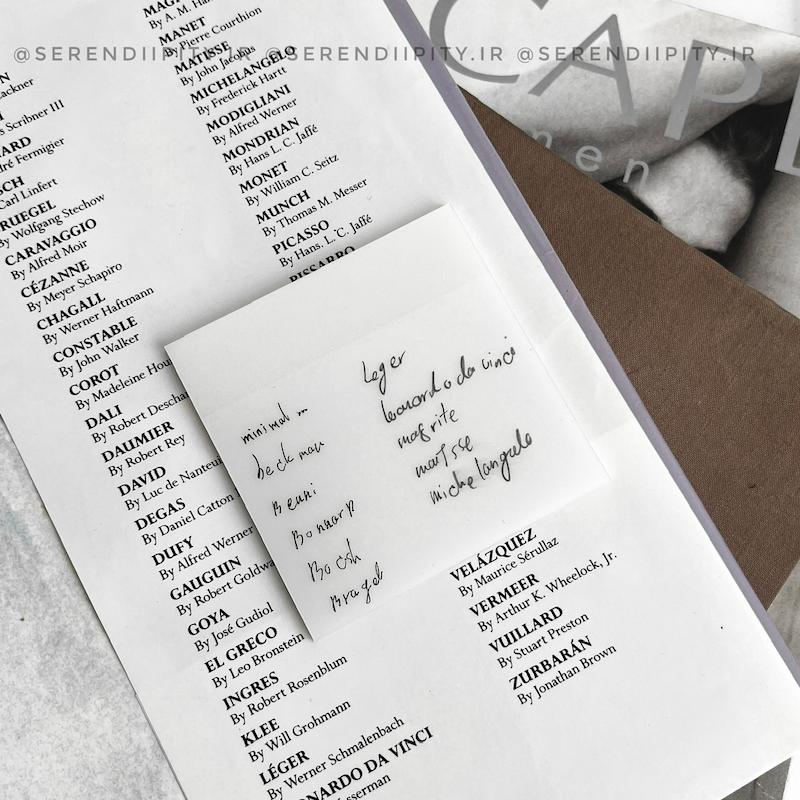 @SERENDIIPITY.IR @SERENDIIPITY.IR @SERENDIIPITY.IR
CAP
nen
By Wolfgang Stechow
CARAVAGGIO
By Alfred Moir
CÉZANNE
By Meyer Schapiro
CHAGALL
By Werner Haftmann
CONSTABLE
By John Walker
COROT
By Madeleine Hou
DALI
By Robert Descha
DAUMIER
By Robert Rey
DAVID
By Luc de Nanteui
DEGAS
By Daniel Catton
DUFY
By Alfred Werner
GAUGUIN
By Robert Goldwa
GOYA
By José Gudiol
EL GRECO
By Leo Bronstein
INGRES
By Robert Rosenblum
KLEE
By Will Grohmann
LÉGER
By Werner Schmalenbach
ONARDO DA VINCI
By A. M. Ha
MANET
By Pierre Courthion
MATISSE
By John Jacobus
MICHELANGELO
By Frederick Hartt
MODIGLIANI
By Alfred Werner
MONDRIAN
By Hans L. C. Jaffé
MONET
By William C. Seitz
MUNCH
By Thomas M. Messer
PICASSO
By Hans. L. C. Jaffé
PISSARRO
VELÁZQUEZ
By Maurice Sérullaz
VERMEER
By Arthur K. Wheelock, Jr.
VUILLARD
By Stuart Preston
ZURBARÁN
By Jonathan Brown
minimal ...
beckman
Bonnarp
Bosh
Brugel
Leger
leonardo da vinci
magrite
matisse
michelangelo